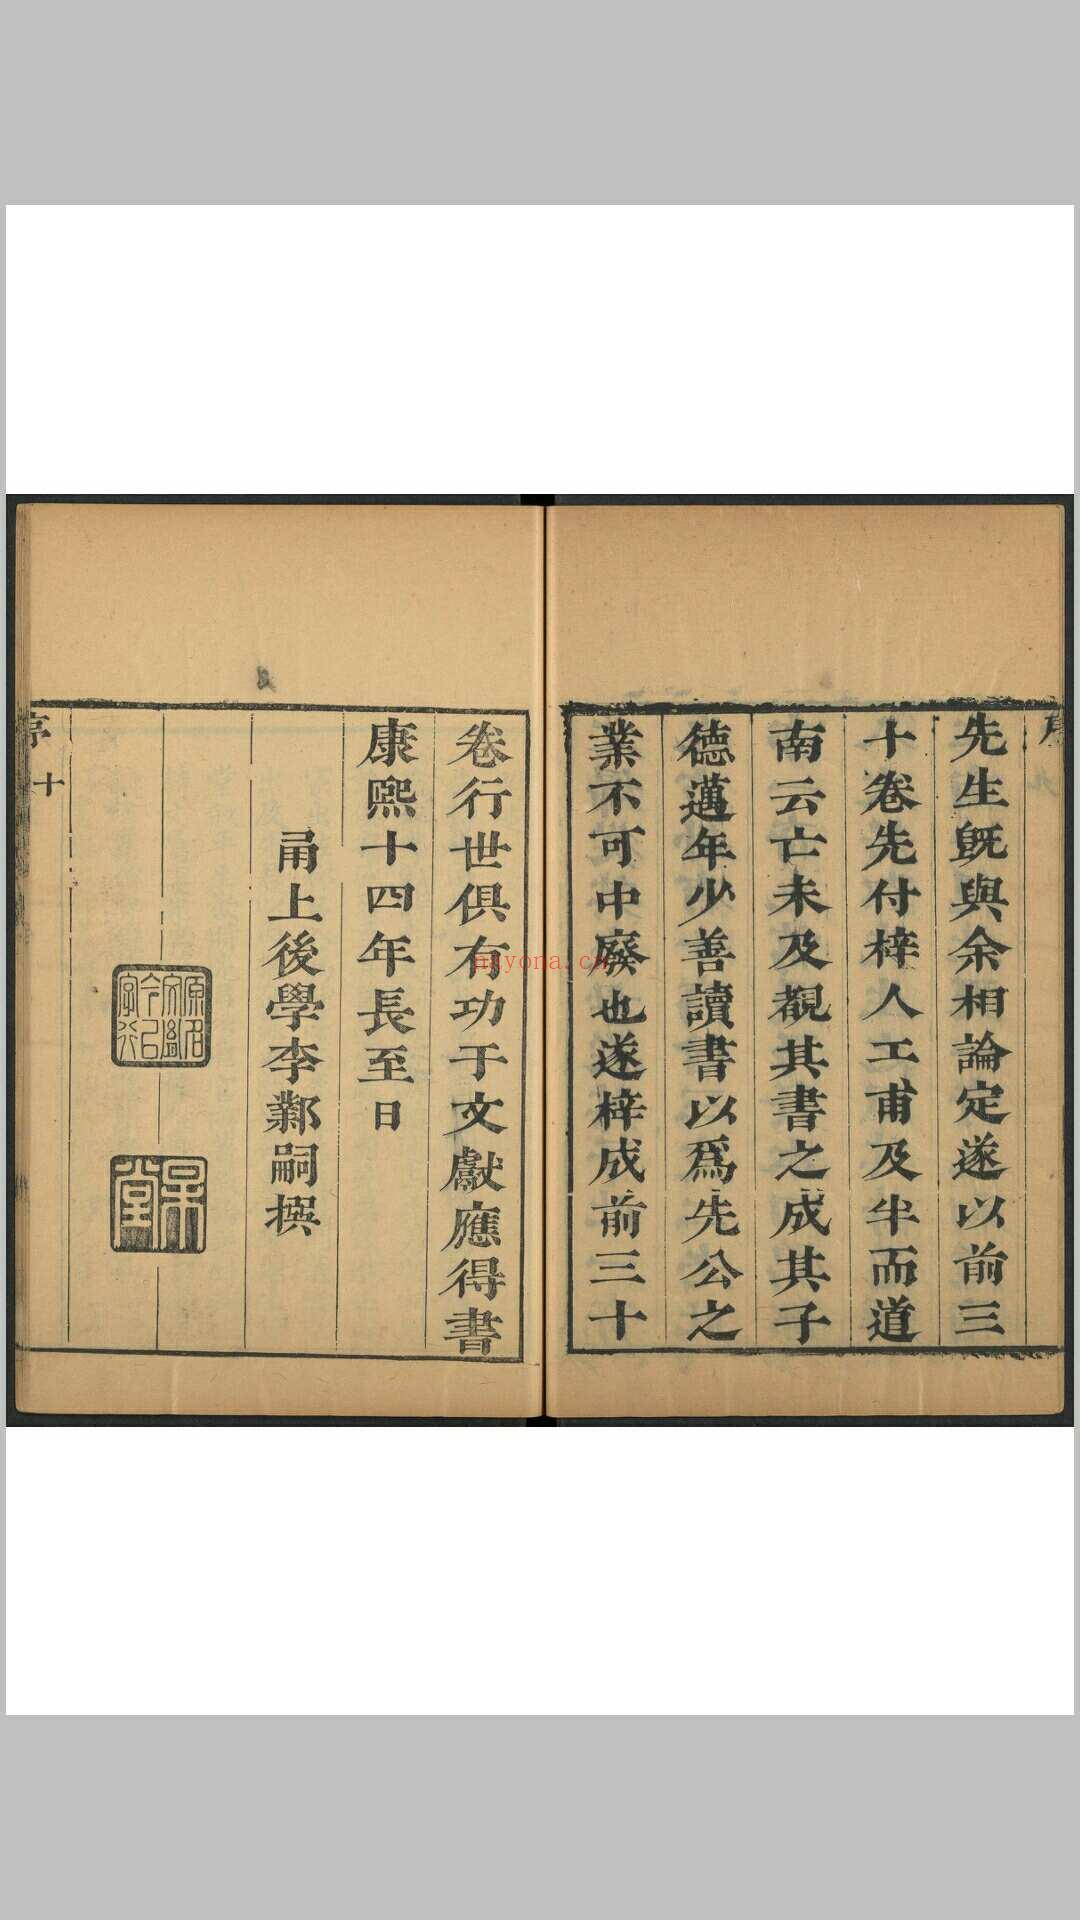 先生旣與余相論定遂以前三
十卷先付梓人工甫及半而道
南云亡未及覩其書之成其子
德邁年少善讀書以爲先公之
業不可中廢也遂梓成前三十
卷行世俱有功于文獻應得書
康熙十四年長至日
甬上後學李鄴嗣撰
序 十
nayona.cn